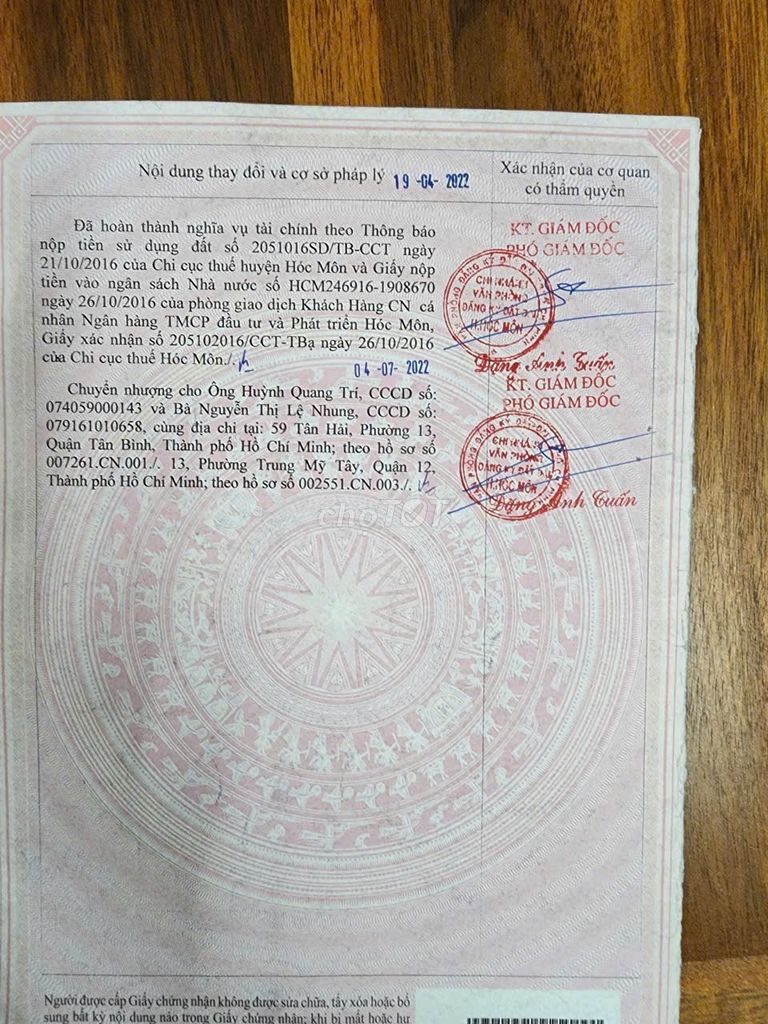 Nội dung thay đổi và cơ sở pháp lý
19 -04- 2022
Xác nhận của cơ quan
có thẩm quyền
Đã hoàn thành nghĩa vụ tài chính theo Thông báo
nộp tiền sử dụng đất số 2051016SD/TB-CCT ngày
21/10/2016 của Chi cục thuế huyện Hóc Môn và Giấy nộp
tiền vào ngân sách Nhà nước số HCM246916-1908670
ngày 26/10/2016 của phòng giao dịch Khách Hàng CN cá
nhân Ngân hàng TMCP đầu tư và Phát triển Hóc Môn,
Giấy xác nhận số 205102016/CCT-TBạ ngày 26/10/2016
của Chi cục thuế Hóc Môn./.
KT. GIÁM ĐỐC
PHÓ GIÁM ĐỐC
CHI NHÁNH
VĂN PHÒNG
ĐĂNG KÝ ĐẤT ĐAI
H.HÓC MÔN
Đặng Anh Tuấn
04 -07- 2022
Chuyển nhượng cho Ông Huỳnh Quang Trí, CCCD số:
074059000143 và Bà Nguyễn Thị Lệ Nhung, CCCD số:
079161010658, cùng địa chỉ tại: 59 Tân Hải, Phường 13,
Quận Tân Bình, Thành phố Hồ Chí Minh; theo hồ sơ số
007261.CN.001./. 13, Phường Trung Mỹ Tây, Quận 12,
Thành phố Hồ Chí Minh; theo hồ sơ số 002551.CN.003./.
KT. GIÁM ĐỐC
PHÓ GIÁM ĐỐC
CHI NHÁNH
VĂN PHÒNG
ĐĂNG KÝ ĐẤT ĐAI
H.HÓC MÔN
Đặng Anh Tuấn
choTỐT
Người được cấp Giấy chứng nhận không được sửa chữa, tẩy xóa hoặc bổ
sung bất kỳ nội dung nào trong Giấy chứng nhận; khi bị mất hoặc hư